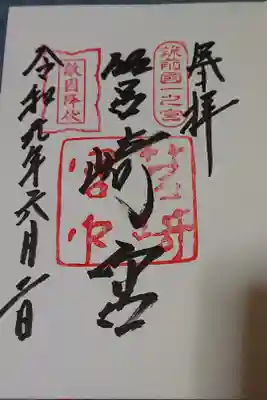 奉拝
筑前國一之宮
筥崎宮
筥崎
宮印
敵國降伏
令和 年六月 日